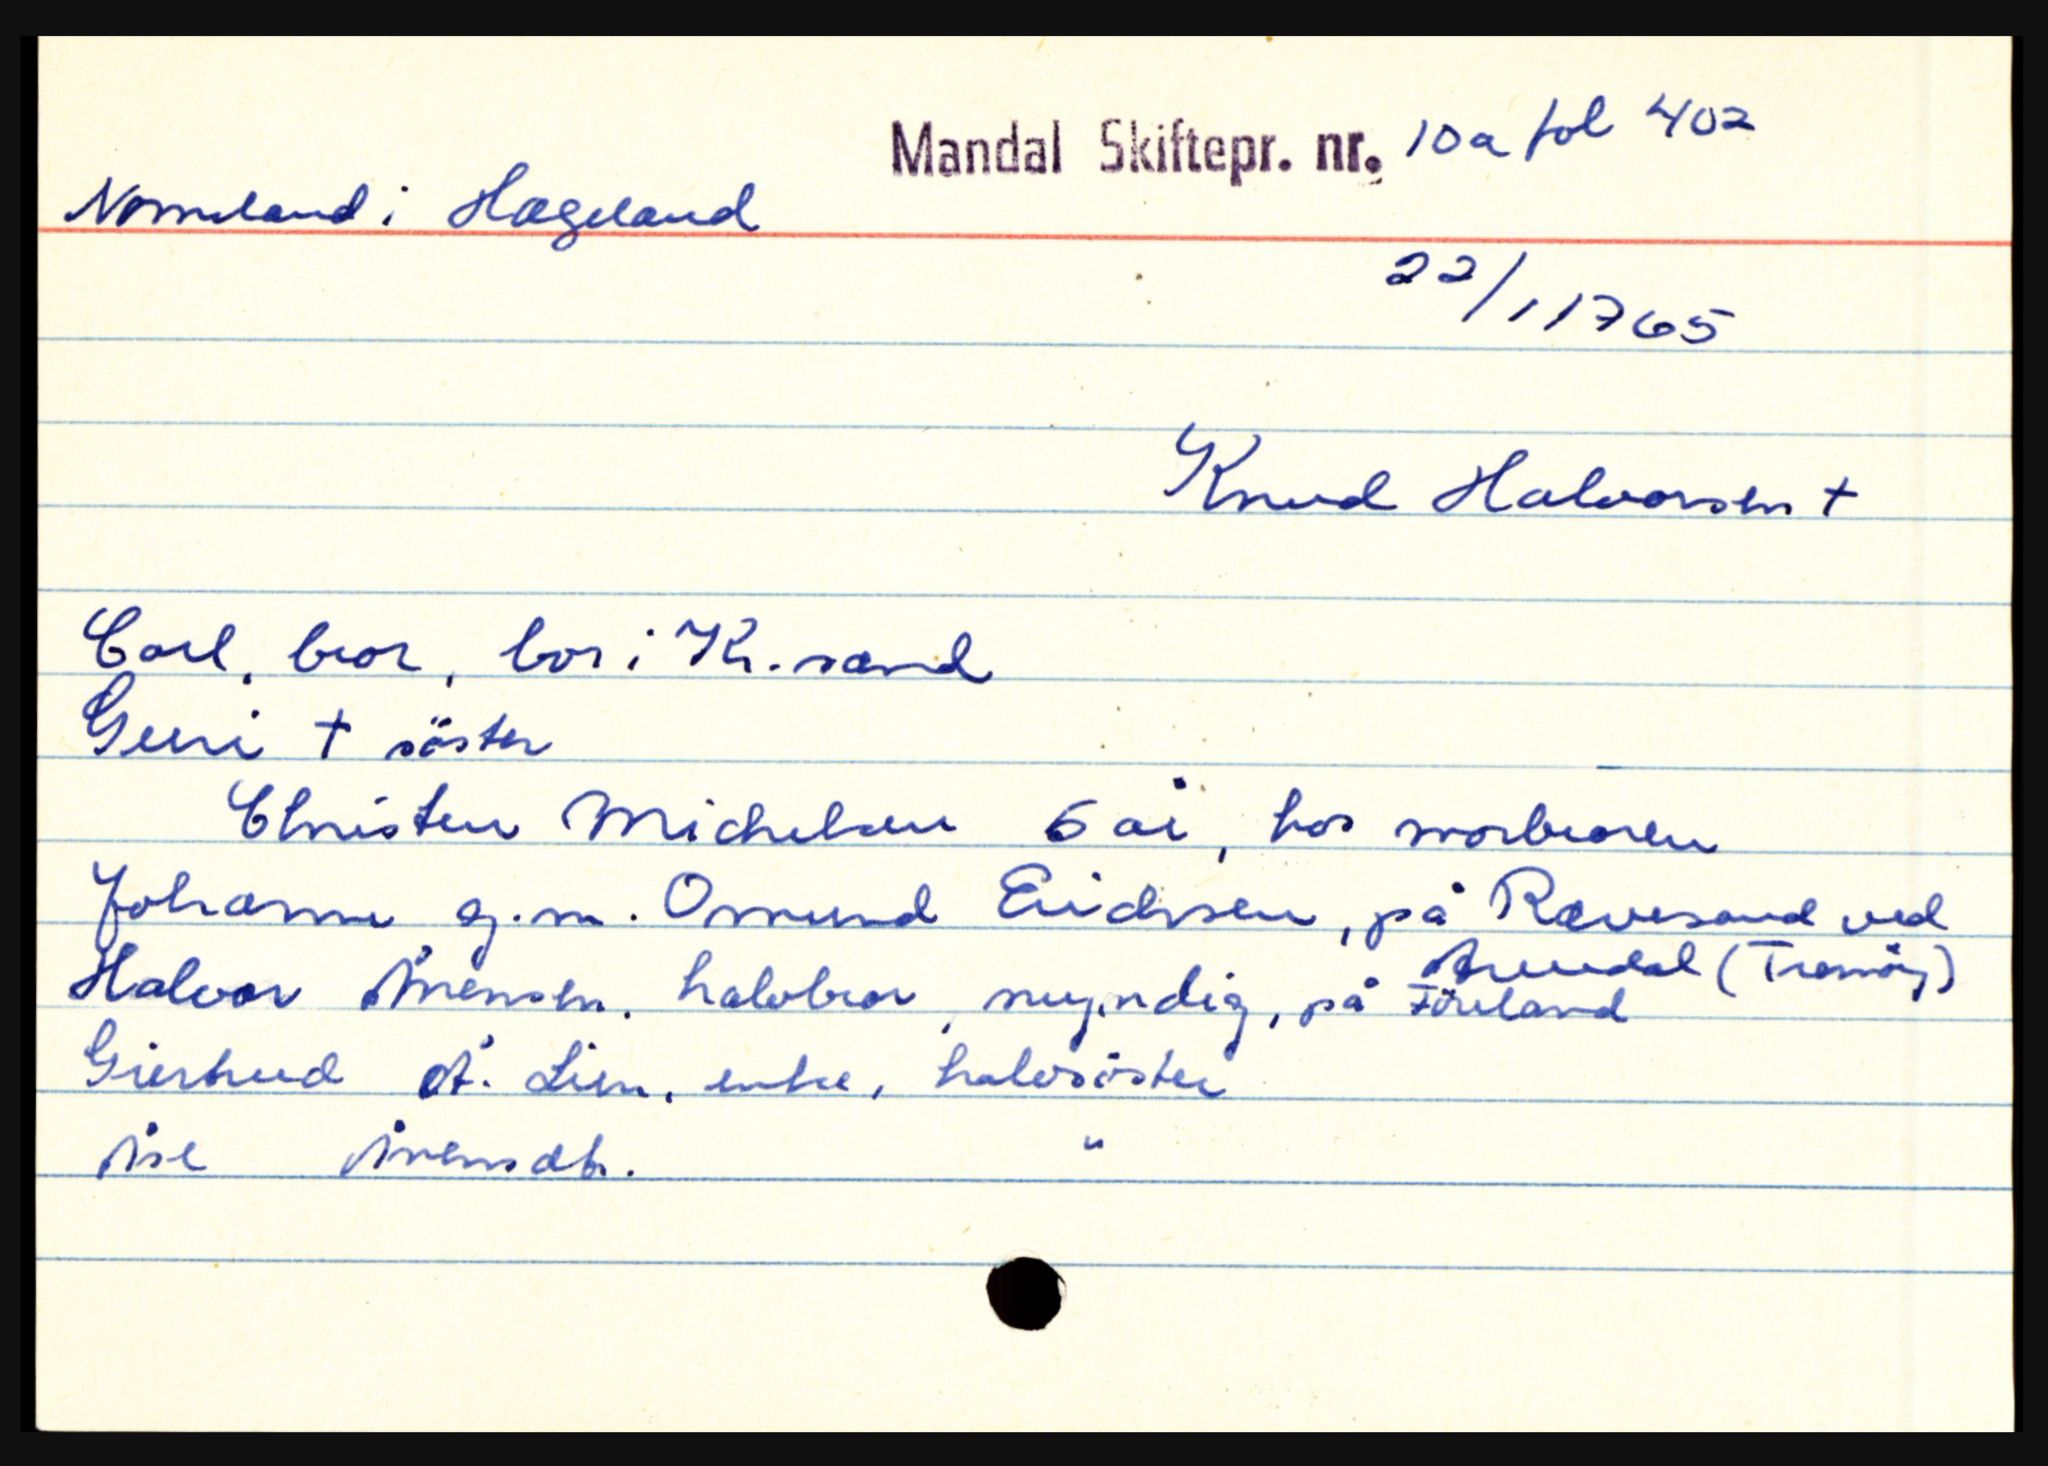 Mandal Skiftepr. nr. 10a fol 402
Nomeland i Hægeland
22/1 1765
Knud Halvorsen †
Carl, bror, bor i Kr.sand
Guri † söster
Christen Michelsen 6 år, hos morbroren
Johanne g.m. Omund Erichsen, på Rævesand ved
Arendal (Tromöy)
Halvor Ånensen. halvbror, myndig, på Föreland
Giertrud A. Lien, enke, halvsöster
Åse Ånensdtr. "